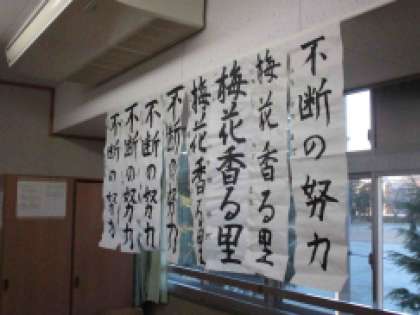 不断の努力
梅花香る里
梅花香る里
梅花香る里
不断の努力
不断の努力
不断の努力
不断の努力